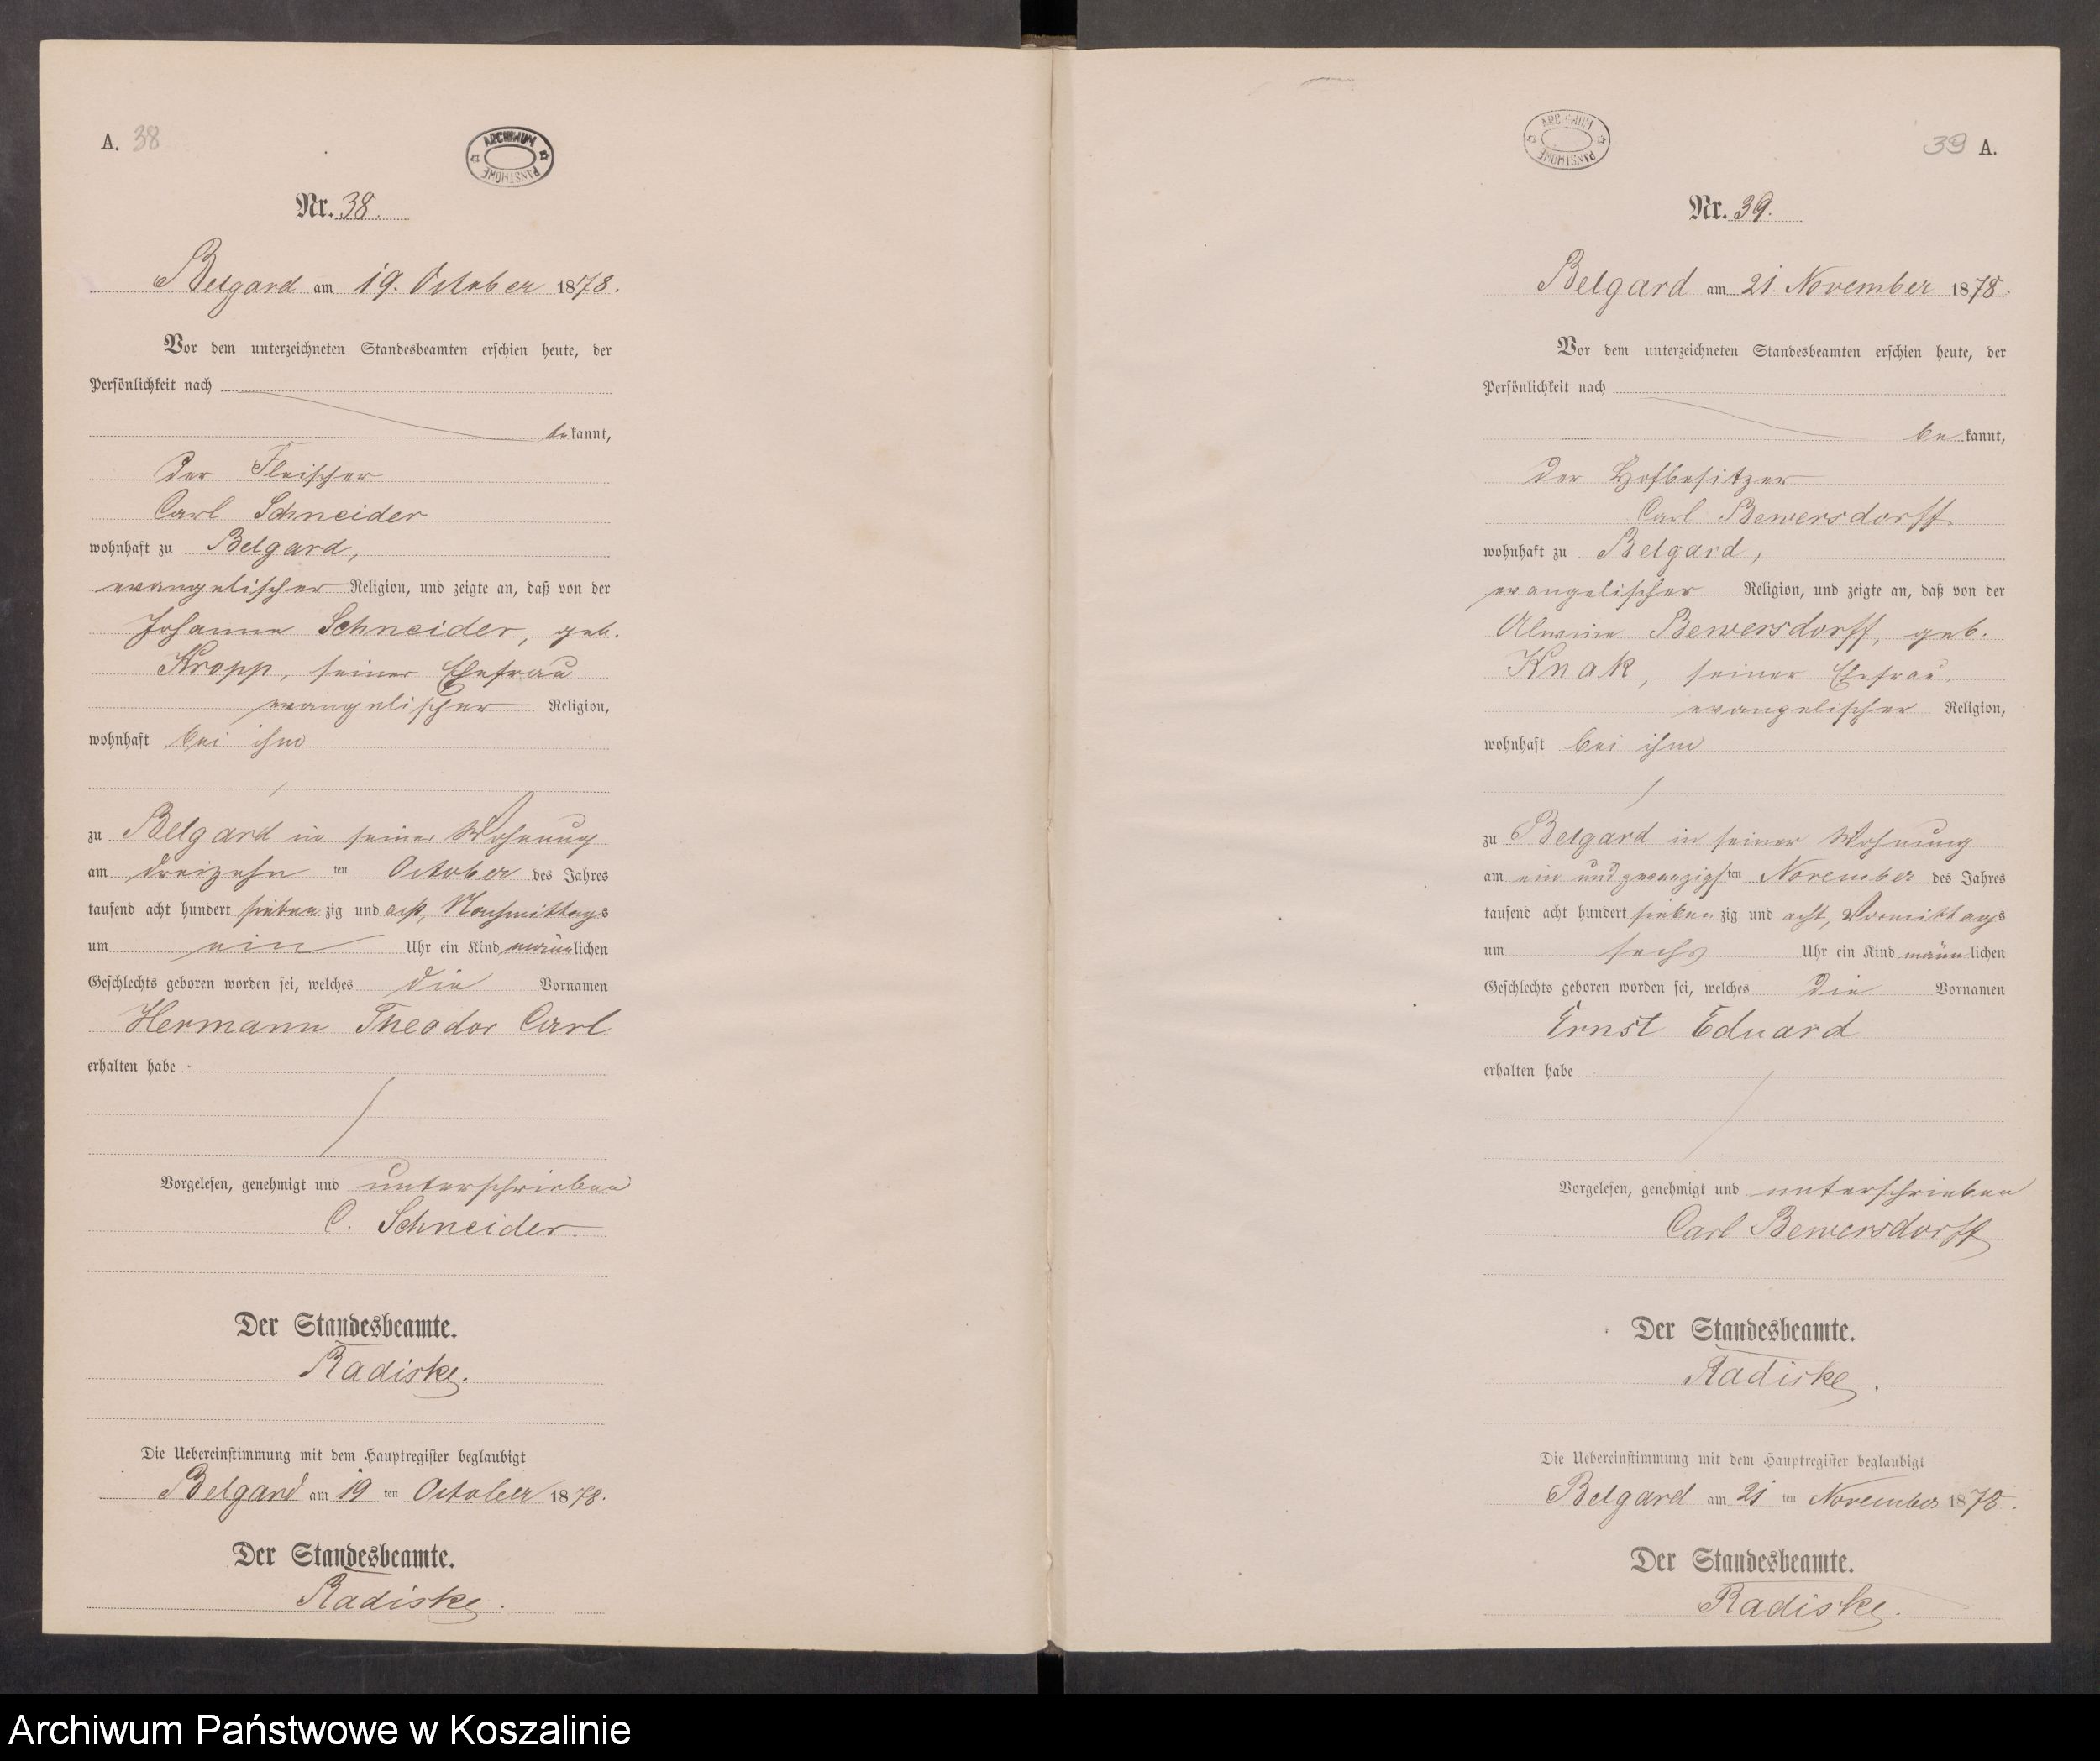 A. 38
ARCHIWUM PAŃSTWOWE
Nr. 38.
Belgard am 19. October 1878.
Vor dem unterzeichneten Standesbeamten erschien heute, der
Persönlichkeit nach
bekannt,
der Fleischer
Carl Schneider
wohnhaft zu Belgard,
evangelischer Religion, und zeigte an, daß von der
Johanne Schneider, geb.
Kropp, seiner Ehefrau
evangelischer Religion,
wohnhaft bei ihm
zu Belgard in seiner Wohnung
am dreizehn ten October des Jahres
tausend acht hundert siebenzig und acht, Nachmittags
um ein Uhr ein Kind männlichen
Geschlechts geboren worden sei, welches die Vornamen
Hermann Theodor Carl
erhalten habe
Vorgelesen, genehmigt und unterschrieben
C. Schneider.
Der Standesbeamte.
Radiske.
Die Uebereinstimmung mit dem Hauptregister beglaubigt
Belgard am 19 ten October 1878.
Der Standesbeamte.
Radiske.
39 A.
ARCHIWUM PAŃSTWOWE
Nr. 39.
Belgard am 21. November 1878.
Vor dem unterzeichneten Standesbeamten erschien heute, der
Persönlichkeit nach
bekannt,
der Hofbesitzer
Carl Bewersdorff
wohnhaft zu Belgard,
evangelischer Religion, und zeigte an, daß von der
Alwine Bewersdorff, geb.
Knak, seiner Ehefrau.
evangelischer Religion,
wohnhaft bei ihm
zu Belgard in seiner Wohnung
am ein und zwanzigsten November des Jahres
tausend acht hundert siebenzig und acht, Vormittags
um sechs Uhr ein Kind männlichen
Geschlechts geboren worden sei, welches die Vornamen
Ernst Eduard
erhalten habe
Vorgelesen, genehmigt und unterschrieben
Carl Bewersdorff
Der Standesbeamte.
Radiske.
Die Uebereinstimmung mit dem Hauptregister beglaubigt
Belgard am 21 ten November 1878.
Der Standesbeamte.
Radiske.
Archiwum Państwowe w Koszalinie